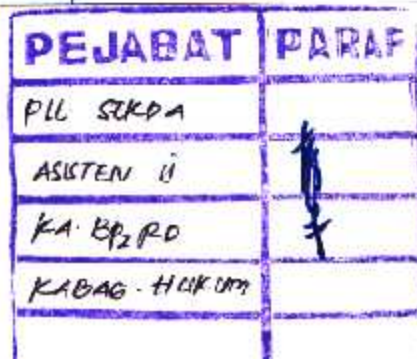 PEJABAT PARAF
PLL SEKDA
ASISTEN II
KA. BP2RD
KABAG. HUKUM